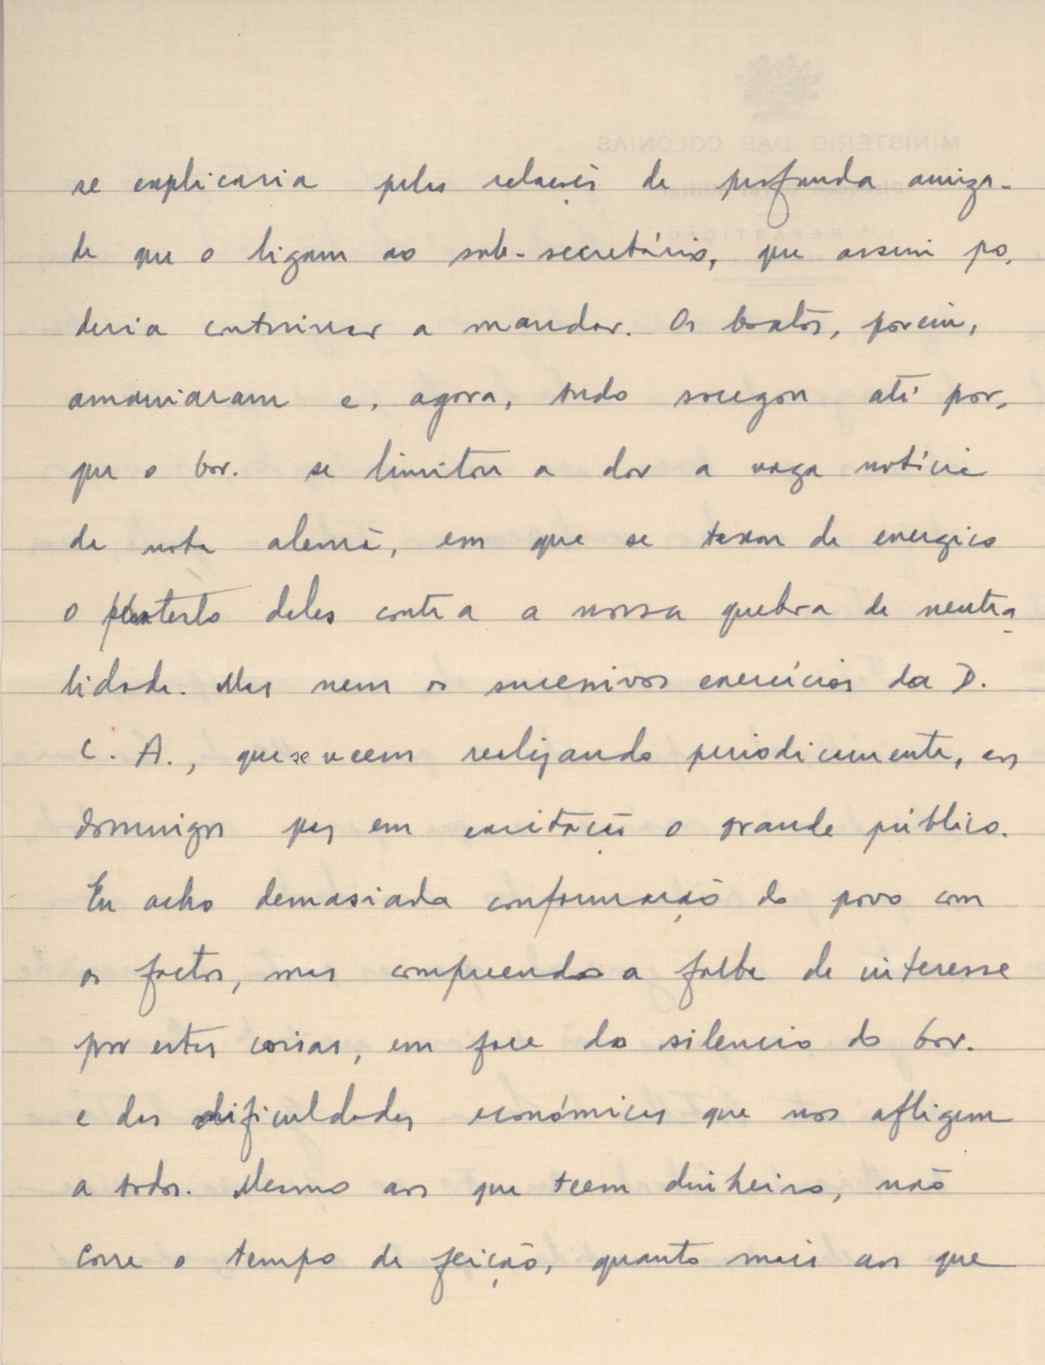 MINISTÉRIO DAS COLONIAS
se explicaria pelas relações de profunda amiza-
de que o ligam ao sub-secretário, que assim po-
deria continuar a mandar. Os boatos, porém,
amainaram e, agora, tudo socegou até por-
que o Gov. se limitou a dar a vaga notícia
da nota alemã, em que se taxou de energico
o protesto deles contra a nossa quebra de neutra-
lidade. Mas nem os sucessivos exercícios da D.
C. A., que se veem realizando periodicamente, aos
domingos poz em excitação o grande público.
Eu acho demasiada conformação do povo com
os factos, mas compreendo a falta de interesse
por estas coisas, em face do silencio do Gov.
e das dificuldades económicas que nos afligem
a todos. Mesmo aos que teem dinheiro, não
corre o tempo de feição, quanto mais aos que